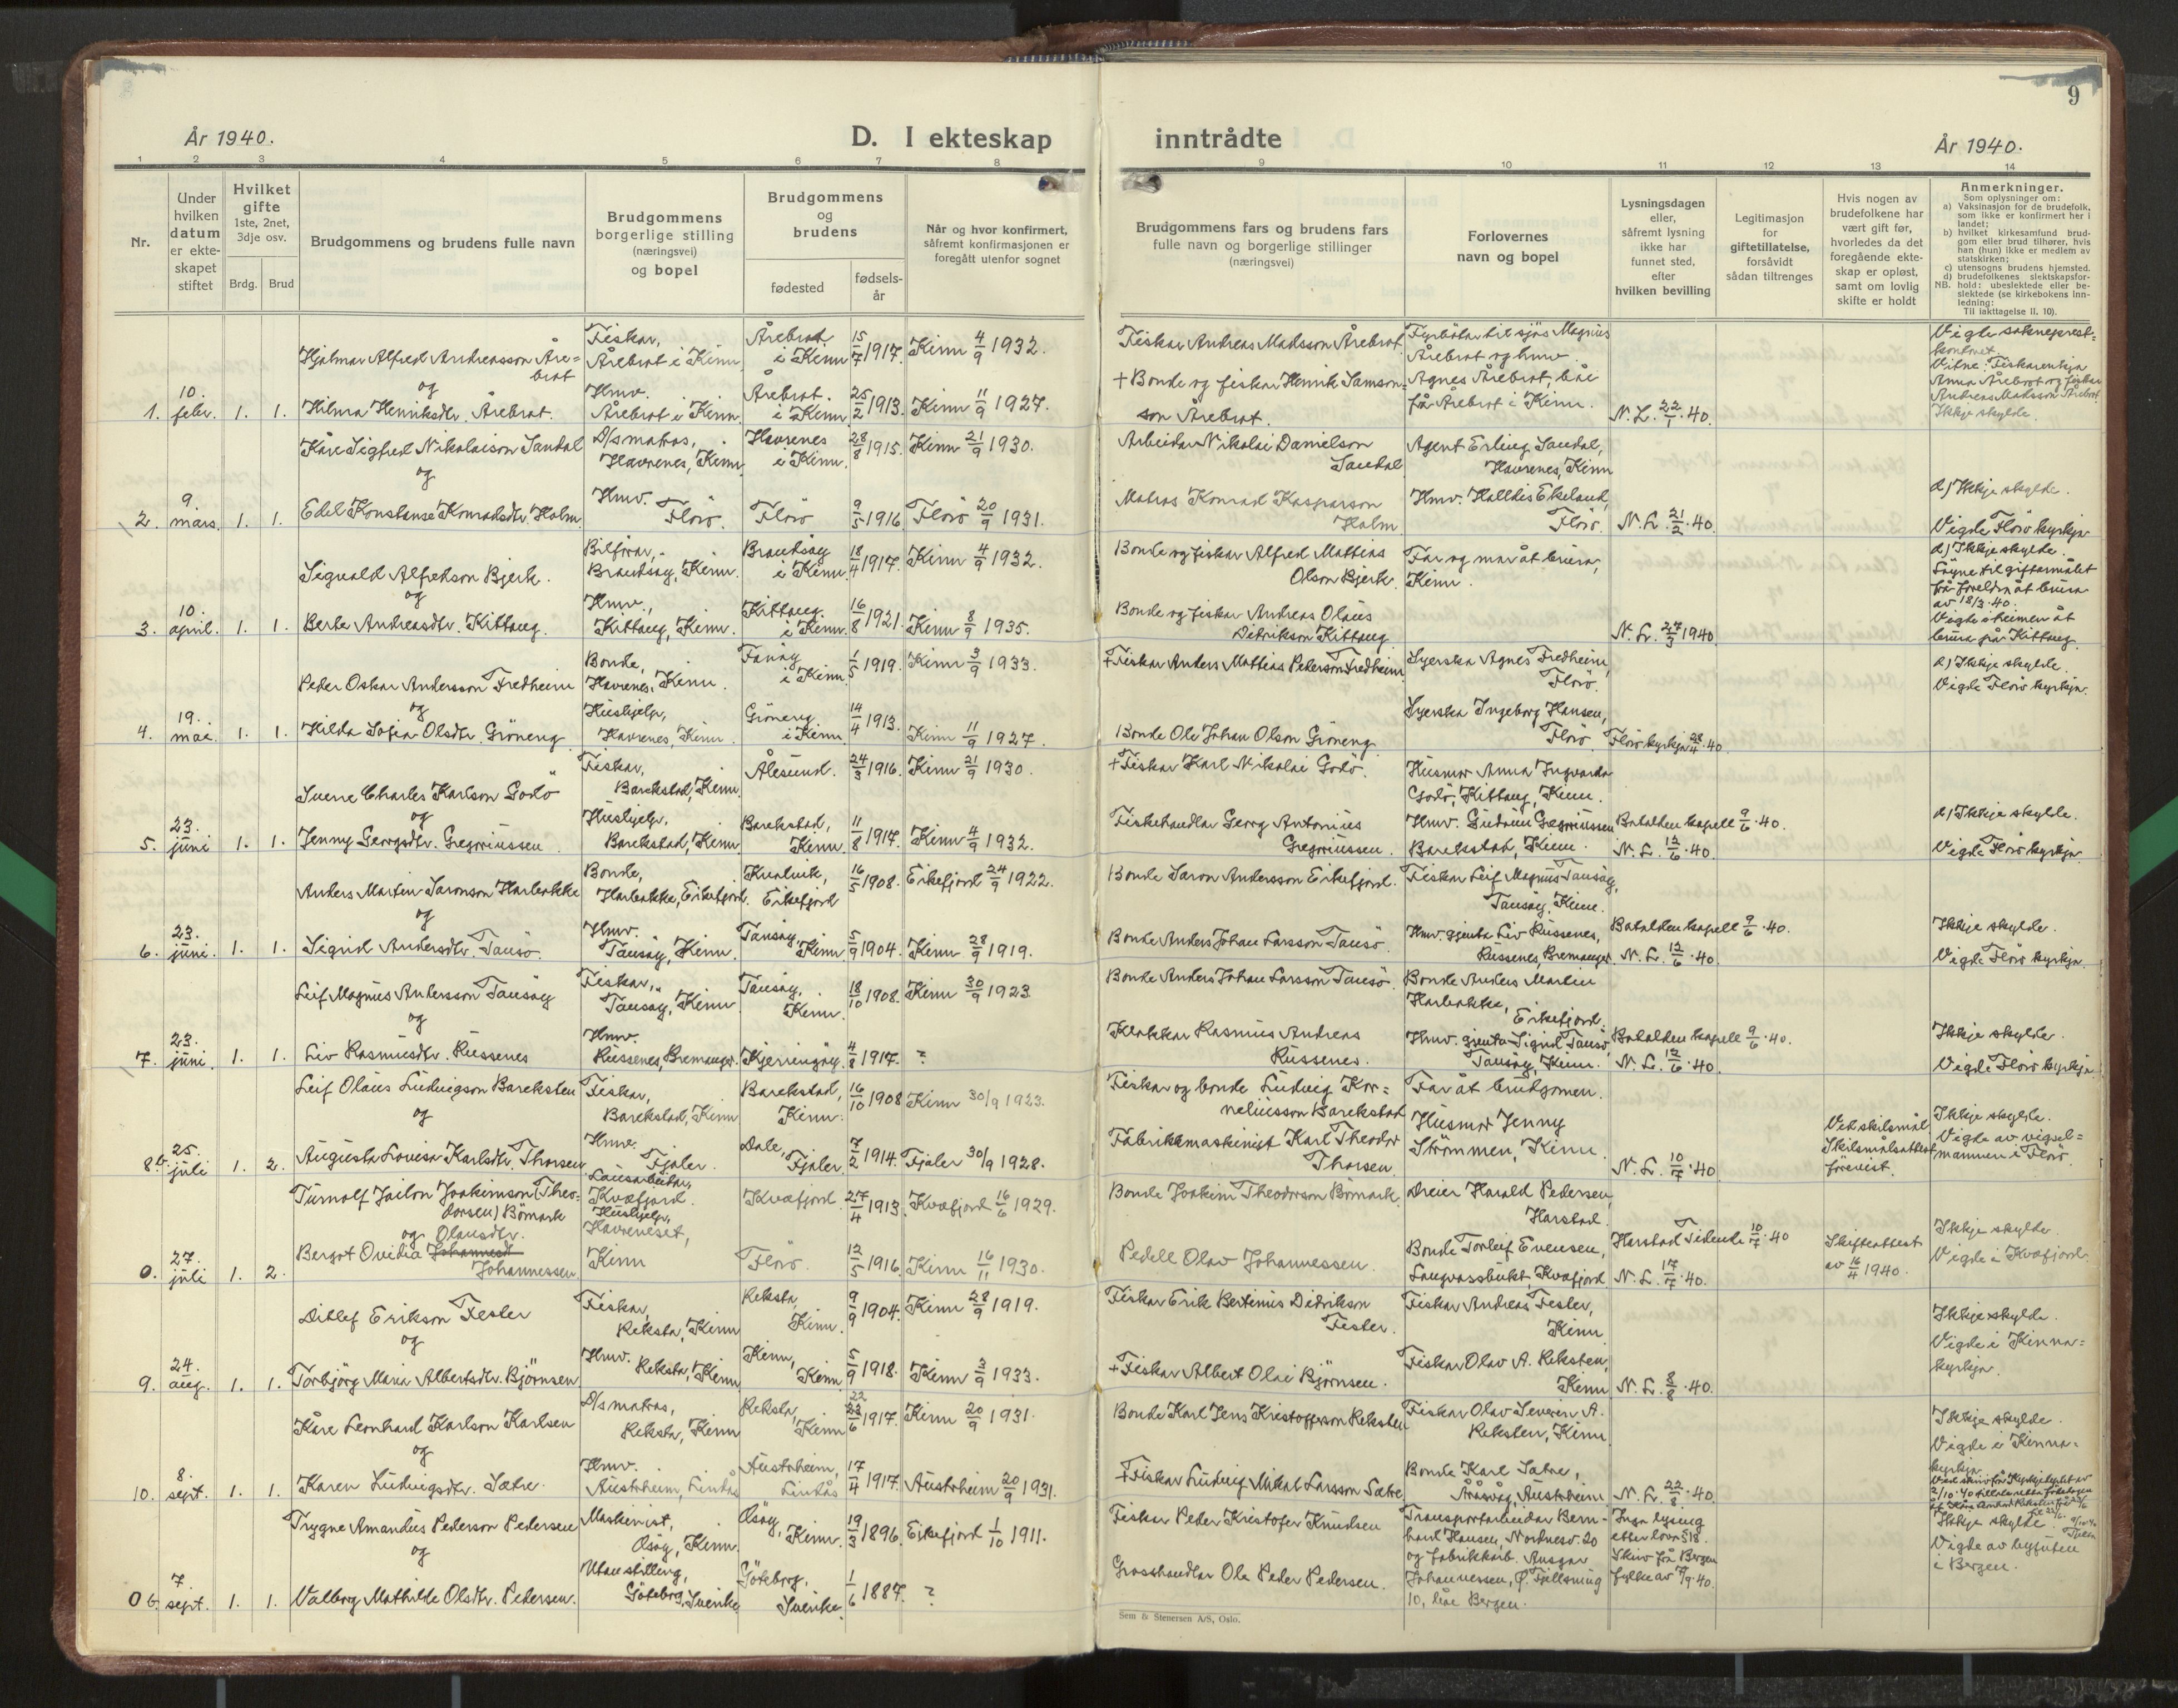 9
År 1940.
D. I ekteskap inntrådte
År 1940.
1 2 3 4 5 6 7 8 9 10 11 12 13 14
Nr.
Under
hvilken
datum
er ekte-
skapet
stiftet
Hvilket
gifte
1ste, 2net,
3dje osv.
Brdg. Brud
Brudgommens og brudens fulle navn
Brudgommens
borgerlige stilling
(næringsvei)
og bopel
Brudgommens
og
brudens
fødested
fødsels-
år
Når og hvor konfirmert,
såfremt konfirmasjonen er
foregått utenfor sognet
Brudgommens fars og brudens fars
fulle navn og borgerlige stillinger
(næringsvei)
Forlovernes
navn og bopel
Lysningsdagen
eller,
såfremt lysning
ikke har
funnet sted,
efter
hvilken bevilling
Legitimasjon
for
giftetillatelse,
forsåvidt
sådan tiltrenges
Hvis nogen av
brudefolkene har
vært gift før,
hvorledes da det
foregående ekte-
skap er opløst,
samt om lovlig
skifte er holdt
Anmerkninger.
Som oplysninger om:
a) Vaksinasjon for de brudefolk,
som ikke er konfirmert her i
landet;
b) hvilket kirkesamfund brud-
gom eller brud tilhører, hvis
han (hun) ikke er medlem av
statskirken;
c) utensogns brudens hjemsted.
d) brudefolkenes slektskapsfor-
NB. hold: ubeslektede eller be-
slektede (se kirkebokens inn-
ledning:
Til iakttagelse II. 10).
1. 10. febr. 1. 1.
Hjalmar Alfred Andreasson Åre=
brot
og
Hilma Henriksdtr. Årebrot.
Fiskar,
Årebrot i Kinn
Hmv.
Årebrot i Kinn.
Årebrot
i Kinn
15/7 1917.
Kinn 4/9 1932.
Årebrot.
i Kinn
25/2 1913.
Kinn 11/9 1927.
Fiskar Andreas Madsson Årebrot
+ Bonde og fiskar Henrik Samson=
son Årebrot.
Fyrbøter til sjøs Magnus
Årebrot og hmv.
Agnes Årebrot, båe
få Årebrot i Kinn.
N. L. 22/1 40.
Vigde sokneprest=
kontoret.
Vitne: Fiskarenkja
Anna Årebrot og fiskar
Andreas Madsson Årebrot
Ikkje skylde.
2. 9. mars. 1. 1.
Kåre Sigfred Nikolaison Sandal
og
Edel Konstanse Konradsdtr. Holm.
D/s matros,
Havrenes, Kinn
Hmv.
Florö.
Havrenes
i Kinn.
28/8 1915.
Kinn 21/9 1930.
Florö
9/5 1916
Florö 20/9 1931.
Arbeidar Nikolai Danielson
Sandal
Matros Konrad Kasparson
Holm
Agent Erling Sandal,
Havrenes, Kinn
Hmv. Halldis Ekeland,
Florö.
N. L. 21/2 40.
d) Ikkje skylde.
Vigde Florö kyrkja
3. 10. april. 1. 1.
Sigvald Alfredson Bjerk.
og
Berta Andreasdtr. Kittang.
Bilförar,
Brandsøy, Kinn.
Hmv.,
Kittang, Kinn.
Brandsøy
i Kinn.
18/4 1917.
Kinn 4/9 1932.
Kittang.
i Kinn.
16/8 1921.
Kinn 8/9 1935.
Bonde og fiskar Alfred Mattias
Olson Bjerk.
Bonde og fiskar Andreas Olaus
Didrikson Kittang
Far og mor åt brura,
Kinn.
N. L. 27/3 1940
d) Ikkje skylde.
Løyve til giftarmålet
frå foreldra åt brura
av 18/3 40.
Vigde i heimen åt
brura på Kittang.
4. 19. mai. 1. 1.
Peder Oskar Andersson Fredheim
og
Hilda Sofia Olsdtr. Gröneng
Bonde,
Havrenes, Kinn.
Hushjelp,
Havrenes, Kinn.
Fanøy
i Kinn.
1/5 1919.
Kinn 3/9 1933.
Gröneng
i Kinn.
14/4 1913.
Kinn 11/9 1927.
+ Fiskar Anders Mattias Pederson Fredheim
Bonde Ole Johan Olson Gröneng
Syerska Agnes Fredheim,
Florö.
Syerska Ingeborg Hansen,
Florö
Florö kyrkja 28/4 40.
d) Ikkje skylde.
Vigde Florö kyrkja.
5. 23. juni 1. 1.
Sverre Charles Karlson Godö
og
Jenny Georgsdtr. Gregoriussen
Fiskar,
Barekstad, Kinn.
Hushjelp,
Barekstad, Kinn
Ålesund.
24/3 1916.
Kinn 21/9 1930.
Barekstad,
Kinn.
11/8 1917.
Kinn 4/9 1932.
+ Fiskar Karl Nikolai Godö.
Fiskehandlar Georg Antonius
Gregoriussen.
Husmor Anna Ingvarda
Godö, Kittang, Kinn.
Hmv. Gudrun Gregoriussen
Barekstad, Kinn.
Batalden kapell 9/6 40.
N. L. 12/6 40.
d) Ikkje skylde.
Vigde Florö kyrkja.
6. 23. juni. 1. 1.
Anders Martin Saronson Harbakke
og
Sigrid Andersdtr. Tansö.
Bonde,
Harbakke, Eikefjord.
Hmv.
Tansøy, Kinn.
Eikefjord
16/5 1908.
Eikefjord 24/9 1922.
Tansøy,
Kinn.
5/9 1904.
Kinn 28/9 1919.
Bonde Saron Andersson Eikefjord.
Bonde Anders Johan Larsson Tansö.
Fiskar Leif Magnus Tansøy,
Tansøy, Kinn.
Hmv. gjenta Liv Russenes,
Russenes, Bremanger.
Batalden kapell 9/6 40.
N. L. 12/6 40.
Ikkje skylde.
Vigde Florö kyrkja.
7. 23. juni. 1. 1.
Leif Magnus Andersson Tansøy
og
Liv Rasmusdtr. Russenes
Fiskar,
Tansøy, Kinn
Hmv.
Russenes, Bremanger.
Tansøy,
Kinn.
18/10 1908.
Kinn 30/9 1923
Kjerringøy.
4/8 1917.
?
Bonde Anders Johan Larsson Tansö.
Klokkar Rasmus Andreas
Russenes.
Bonde Anders Martin
Harbakke,
Eikefjord.
Hmv. gjenta Sigrid Tansö,
Tansøy, Kinn.
Batalden kapell 9/6 40.
N. L. 12/6 40.
Ikkje skylde.
Vigde Florö kyrkja.
8b. 25. juli 1. 2.
Leif Olaus Ludvigson Bareksten
og
Augusta Lovisa Karlsdtr. Thorsen
Fiskar,
Barekstad, Kinn
Hmv.
Fjaler.
Barekstad,
Kinn.
16/10 1908
Kinn 30/9 1923.
Dale,
Fjaler.
7/2 1914.
Fjaler 30/9 1928.
Fiskar og bonde Ludvig Kor=
neliusson Barekstad
Fabrikkmaskinist Karl Theodor
Thorsen
Far åt brudgomen.
Husmor Jenny
Strömmen, Kinn.
N. L. 10/7 40
Ved skilsmål
Skilsmålsattest
förevist.
Ikkje skylde.
Vigde av vigsel=
mannen i Florö.
0. 27. juli 1. 2.
Turnolf Jailon Joakimson (Theo=
dorsen) Bömark
og Olausdtr.
Bergot Ovidia
Johannessen
Lausarbeidar,
Kvæfjord.
Hushjelp,
Havreneset,
Kinn
Kvæfjord
27/4 1913.
Kvæfjord 16/6 1929.
Florö.
12/5 1916.
Kinn 16/11 1930.
Bonde Joakim Theodorson Bömark
Pedell Olav Johannessen.
Dreier Harald Pedersen,
Harstad.
Bonde Torleif Evensen,
Langvassbukt, Kvæfjord
Harstad Tidende 10/7 40
N. L. 17/7 40.
Skifteattest
av 16/4 1940.
Ikkje skylde
Vigde i Kvæfjord.
9. 24. aug. 1. 1.
Ditlef Erikson Fester
og
Torbjörg Maria Albertsdtr. Björnsen
Fiskar,
Reksta, Kinn
Hmv.
Reksta, Kinn
Reksta,
Kinn.
9/9 1904.
Kinn 28/9 1919.
Kinn,
Kinn
5/9 1918.
Kinn 3/9 1933.
Fiskar Erik Bertinus Didrikson
Fester.
+ Fiskar Albert Olai Björnsen.
Fiskar Andreas Fester,
Kinn
Fiskar Olav A. Reksten,
Kinn
N. L. 8/8 40.
Ikkje skylde.
Vigde i Kinna=
kyrkja.
10. 8. sept. 1. 1.
Kåre Leonhard Karlson Karlsen
og
Karen Ludvigsdtr. Sætre.
D/s matros,
Reksta, Kinn
Hmv.
Austrheim, Lindås
Reksta,
Kinn
22
23/6 1917.
Kinn 20/9 1931.
Austrheim,
Lindås
17/4 1917.
Austrheim 20/9 1931.
Bonde Karl Jens Kristofferson Reksten
+ Fiskar Ludvig Mikal Larsson Sætre
Fiskar Olav Severin A.
Reksten, Kinn
Bonde Karl Sætre,
Åråsvåg, Austrheim
N. L. 22/8 40.
Ikkje skylde.
Vigde i Kinna-
kyrkja.
0 b. 7. sept. 1. 1.
Trygve Amandus Pederson Pedersen
og
Valborg Mathilde Olsdtr. Pedersen.
Maskinist,
Ösøy, Kinn.
Utan stilling,
Göteborg, Sverike
Ösøy,
Kinn.
19/3 1896.
Eikefjord 1/10 1911.
Göteborg,
Sverike.
1/6 1887.
?
Fiskar Peder Kristofer Knudsen
Grosshandlar Ole Peder Pedersen.
Transportarbeidar Bern-
hard Hansen, Nordnesv. 20
og fabrikkarb. Ansgar
Johannessen, Ø. Fjellsmug
10, båe Bergen.
Inga lysing
etter lova § 18.
Skriv frå Bergen
fylke av 7/9 40.
Ikkje skylde.
Vigde av byfuten
i Bergen.
Sem & Stenersen A/S, Oslo.